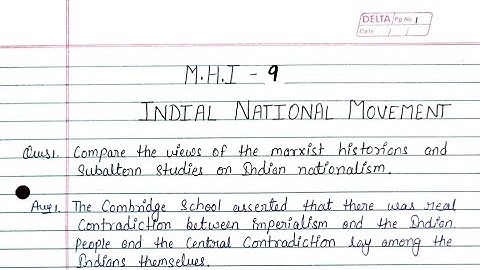 DELTA Pg No. 1
Date / /
M.H.I - 9
INDIAL NATIONAL MOVEMENT
Ques1. Compare the views of the marxist historians and
Subaltern Studies on Indian nationalism.
Ans1. The Cambridge School asserted that there was real
Contradiction between imperialism and the Indian
People and the Central Contradiction lay among the
Indians themselves.